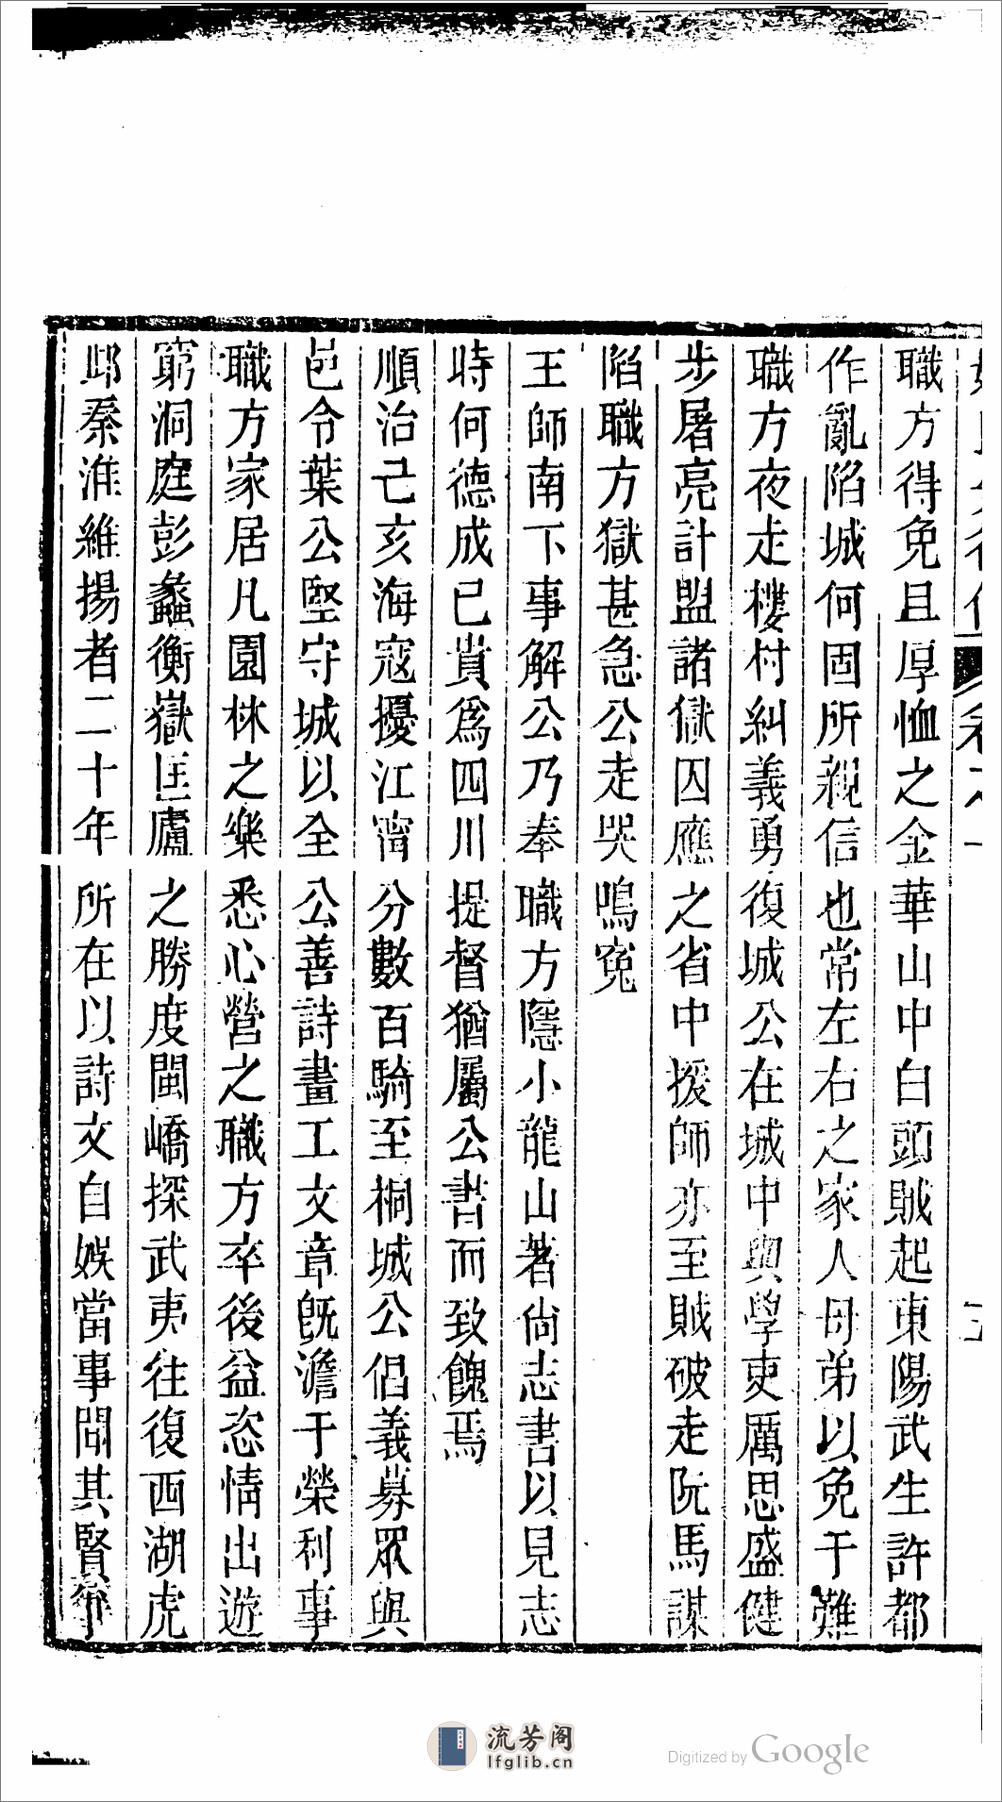 職方得免且厚恤之金華山中白頭賊起東陽武生許都
作亂陷城何固所親信也常左右之家人母弟以免于難
職方夜走樓村糾義勇復城公在城中與學吏厲思盛健
步屠亮計盟諸獄囚應之省中援師亦至賊破走阮馬謀
陷職方獄甚急公走哭鳴寃
王師南下事解公乃奉職方隱小龍山著尚志書以見志
時何德成已貴爲四川提督猶屬公書而致餽焉
順治己亥海寇擾江甯分數百騎至桐城公倡義募眾與
邑令葉公堅守城以全公善詩畫工文章旣澹于榮利事
職方家居凡園林之樂悉心營之職方卒後益恣情出遊
窮洞庭彭蠡衡嶽匡廬之勝度閩嶠探武夷往復西湖虎
邱秦淮維揚者二十年所在以詩文自娛當事聞其賢爭
流芳阁
lfglib.cn
Digitized by Google